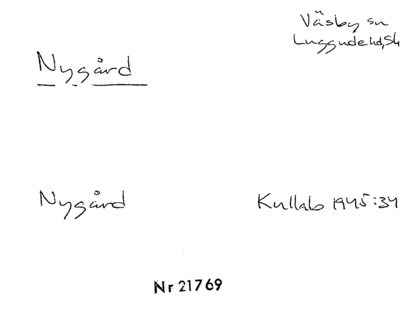 Väsby sn
Luggude hd, Sk
Nygård
Nygård
Kullab 1945:34
Nr 21769